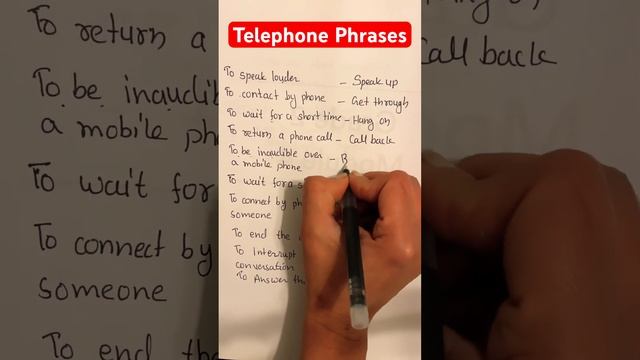 Telephone Phrases
To speak louder - Speak up
To contact by phone - Get through
To wait for a short time - Hang on
To return a phone call - Call back
To be inaudible over - B
a mobile phone
To wait for a s
To connect by ph
someone
To end the
To Interrupt
conversation
To Answer th
To return a
To be inaudib
a mobile ph
To wait for
To connect by
someone
To end the
Call back